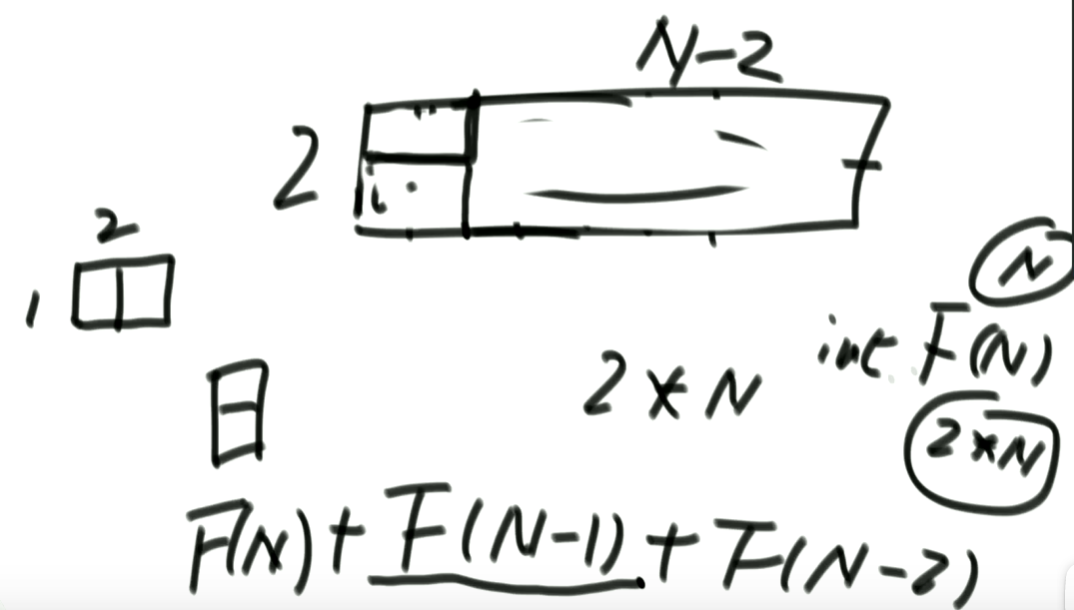 N-2
2
2
1
N
int F(N)
2*N
2*N
F(N)+F(N-1)+F(N-2)